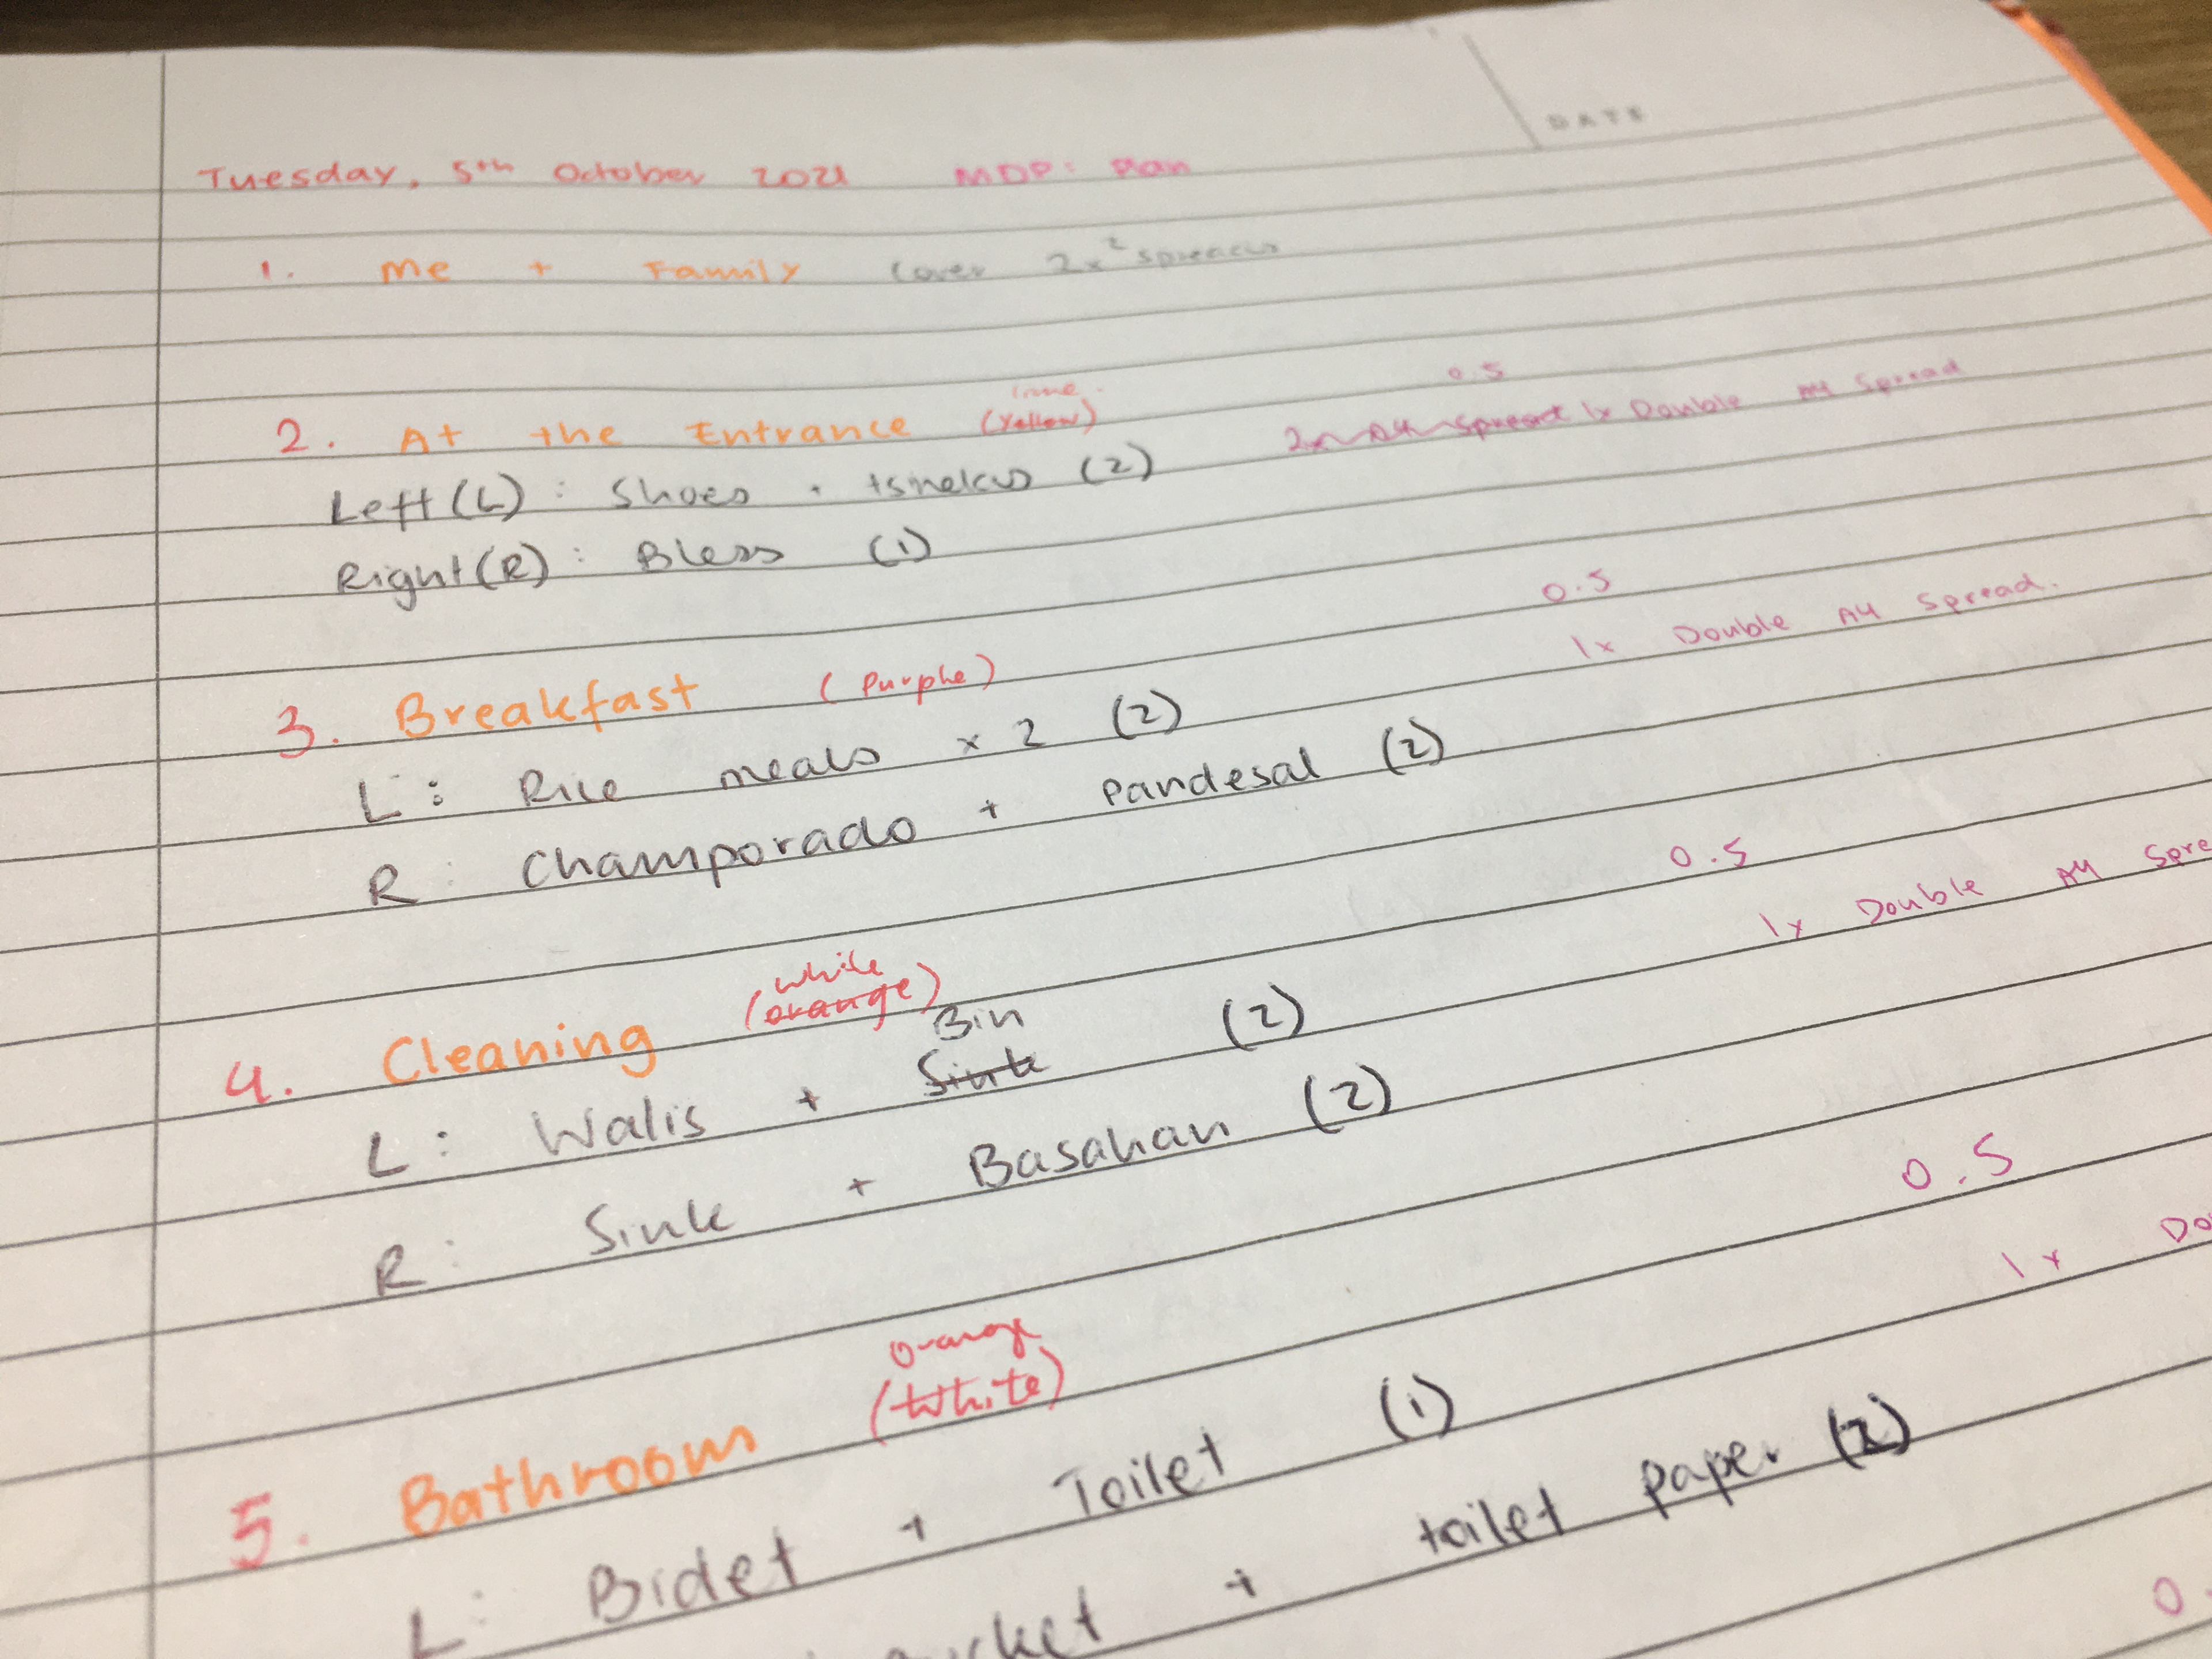 DATE
Tuesday, 5th October 2021 MDP: Plan
1. Me + Family cover 2x 2 spreads
0.5
2. At the Entrance (Yellow) 2x A4 spread 1x Double A4 Spread
Left (L): Shoes + tsinelas (2)
Right (R): Bless (1)
0.5
3. Breakfast (Purple) 1x Double A4 Spread.
L: Rice meals x 2 (2)
R: Champorado + Pandesal (2)
0.5
white
4. Cleaning (orange) 1x Double A4 Spre
Bin
L: Walis + Sink (2)
R: Sink + Basahan (2)
0.5
orange
5. Bathroom (White) 1x Do
L: Bidet + Toilet (1)
+ toilet paper (2)
0.